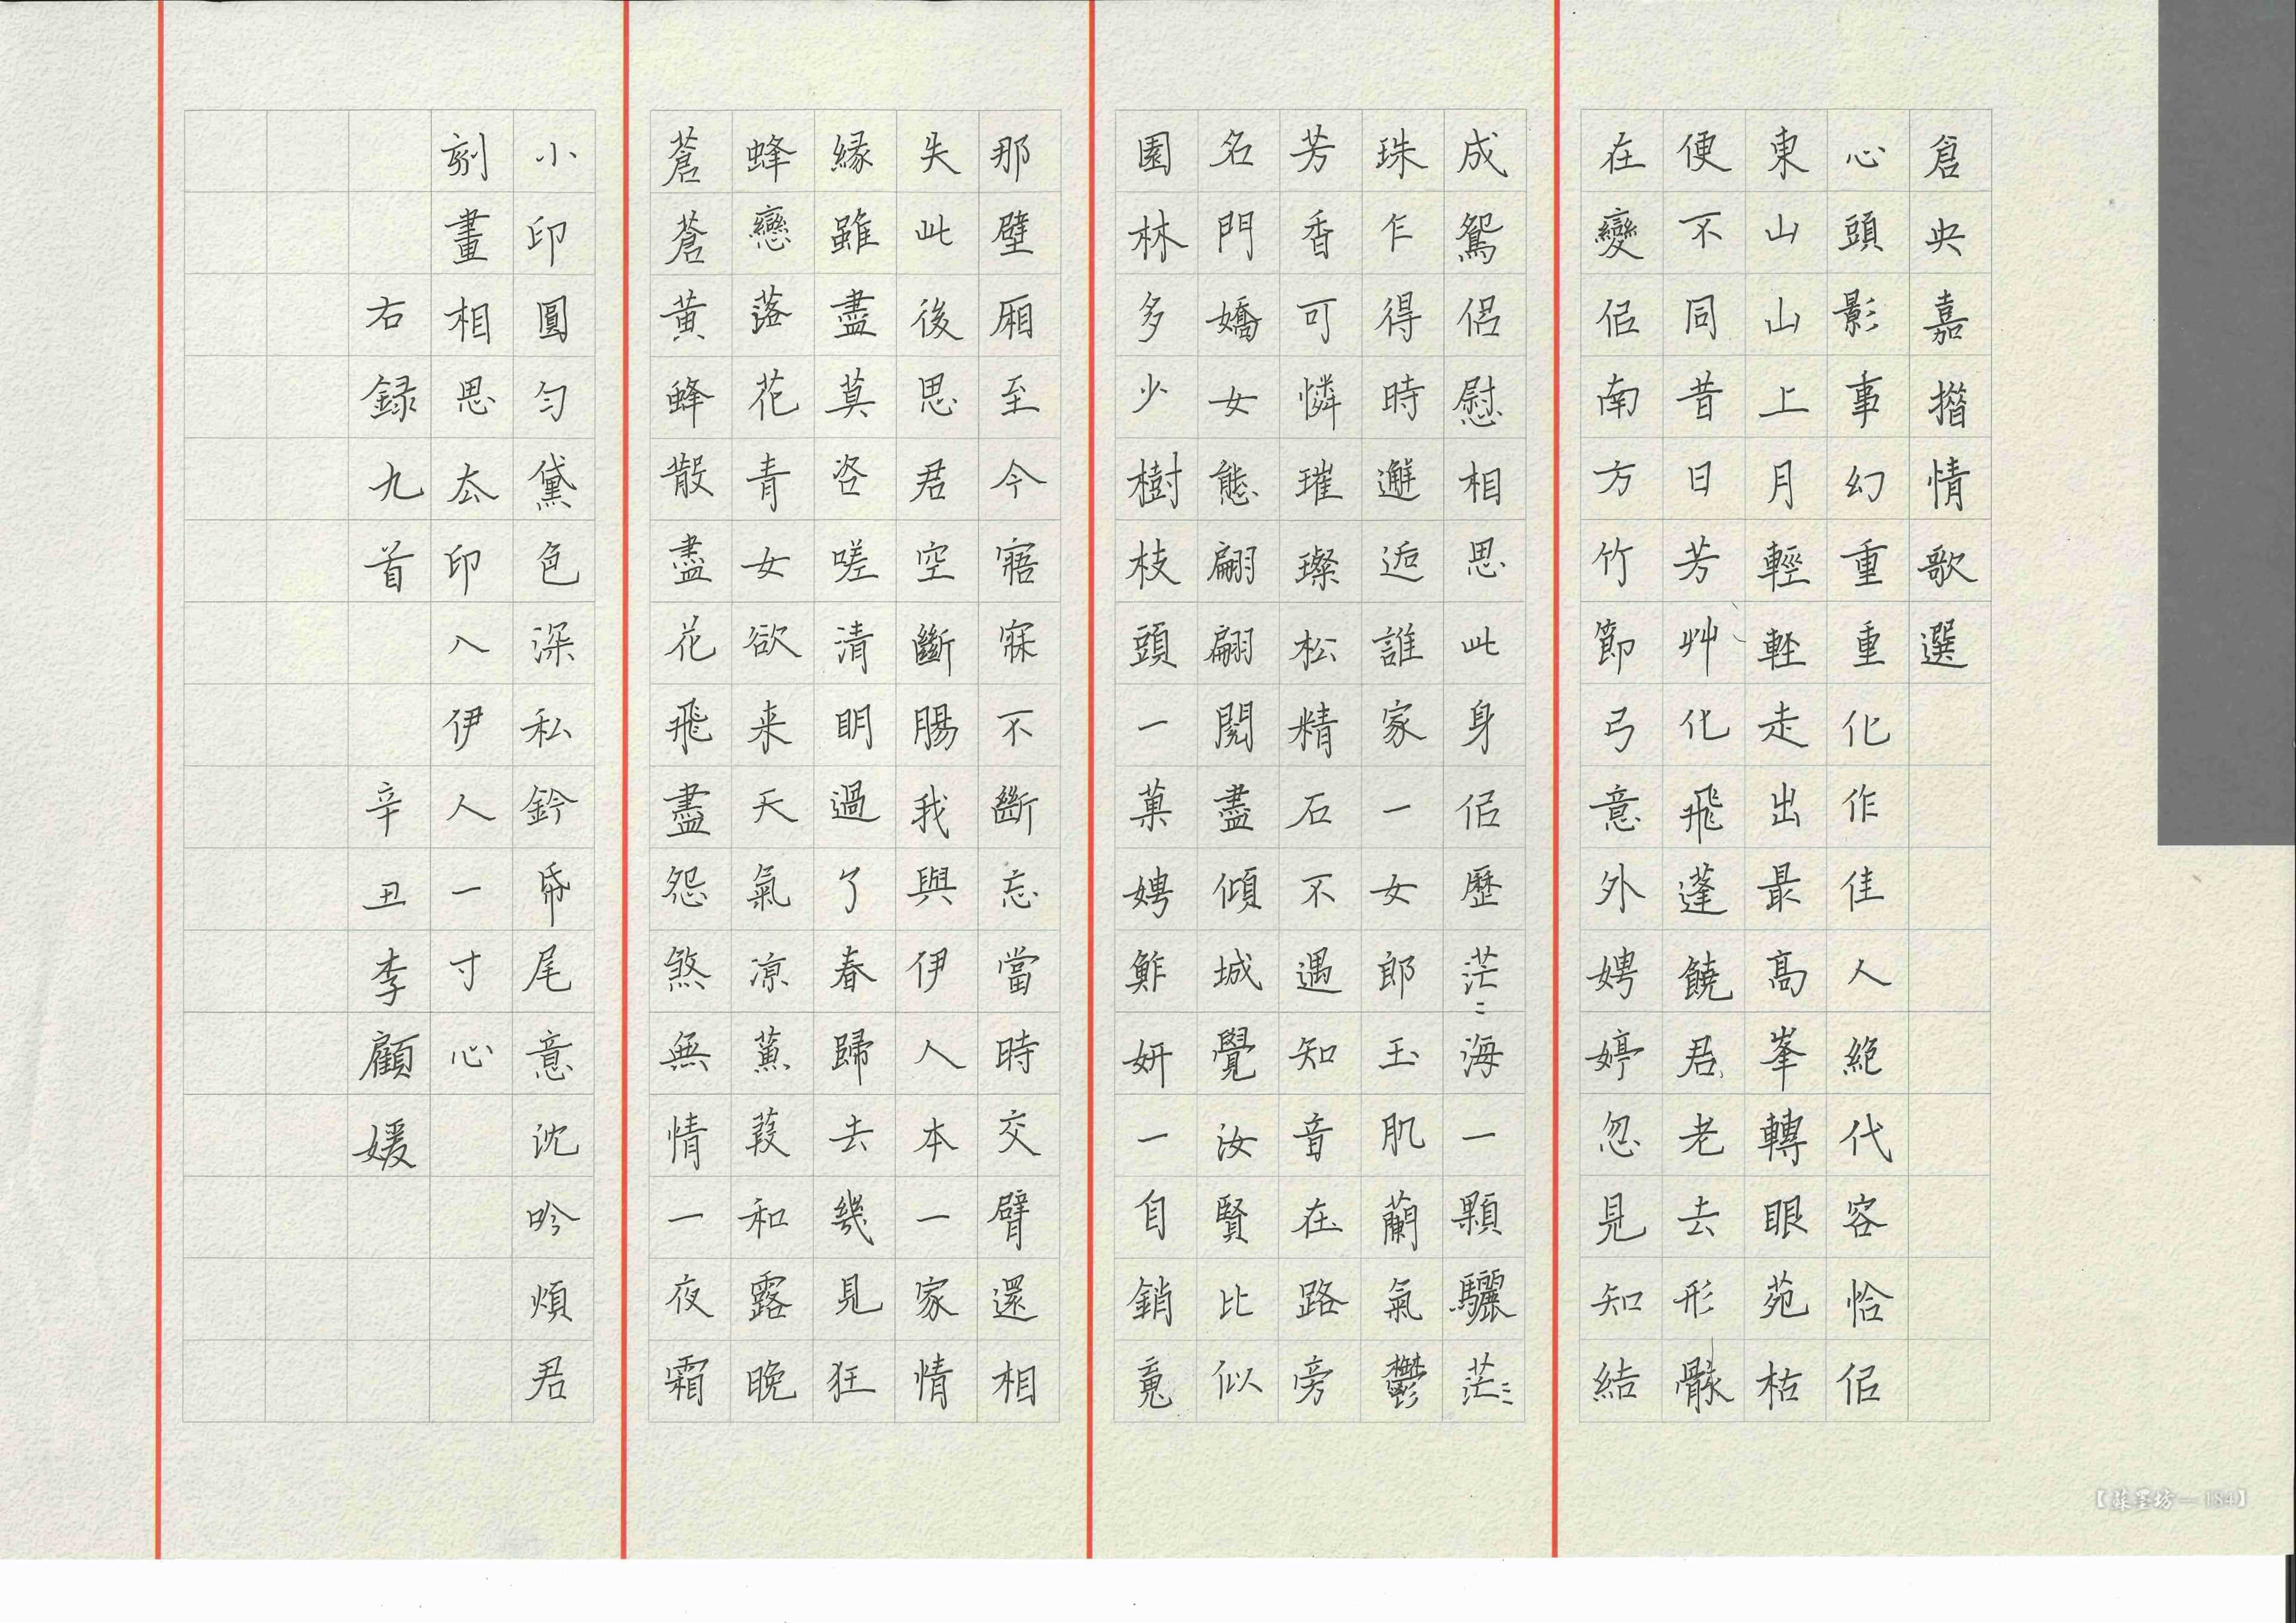 倉央嘉措情歌選
心頭影事幻重重化作佳人絕代容恰佀
東山山上月輕輕走出最高峯轉眼苑枯
便不同昔日芳艸化飛蓬饒君老去形骸
在變佀南方竹節弓意外娉婷忽見知結
成鴛侶慰相思此身佀歷茫〻海一顆驪茫〻
珠乍得時邂逅誰家一女郎玉肌蘭氣鬱
芳香可憐璀璨松精石不遇知音在路旁
名門嬌女態翩翩閱盡傾城覺汝賢比似
園林多少樹枝頭一菓娉鮓妍一自銷䰟
那壁廂至今寤寐不斷忘當時交臂還相
失此後思君空斷腸我與伊人本一家情
緣雖盡莫咨嗟清明過了春歸去幾見狂
蜂戀落花青女欲来天氣凉蒹葭和露晚
蒼蒼黃蜂散盡花飛盡怨煞無情一夜霜
小印圓勻黛色深私鈐帋尾意沈吟煩君
刻畫相思去印入伊人一寸心
右録九首 辛丑李顧媛
【蘇墨坊—184】